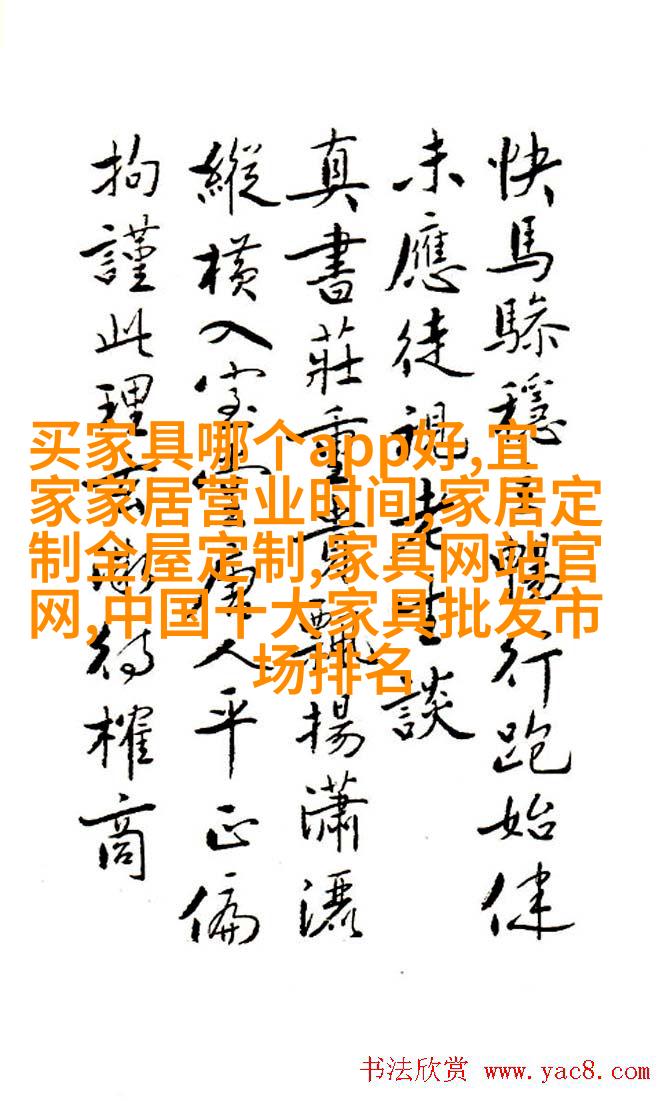 快馬穩暢行跑始健
未應徒視老生談
真書莊重貴飄揚瀟灑
縱橫入人平正偏
拘謹此理待榷商
买家具哪个app好,宜
家家居营业时间,家居定
制全屋定制,家具网站官
网,中国十大家具批发市
场排名
书法欣赏 www.yac8.com